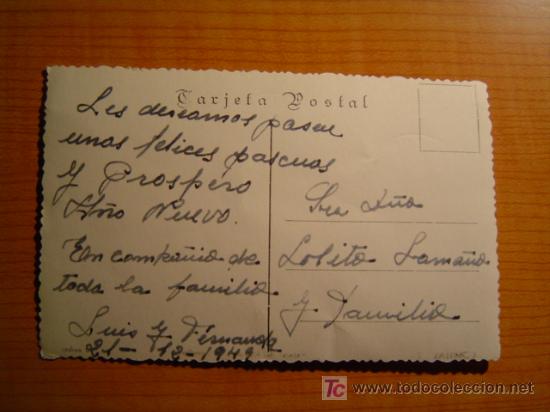 Tarjeta Postal
Les deseamos pasen
unas felices pascuas
y Prospero
Año Nuevo.
En compañia de
toda la familia
Luis y Fernanda
21-12-1949
Sra Dña
Lolita Samaño
y Familia
TC www.todocoleccion.net